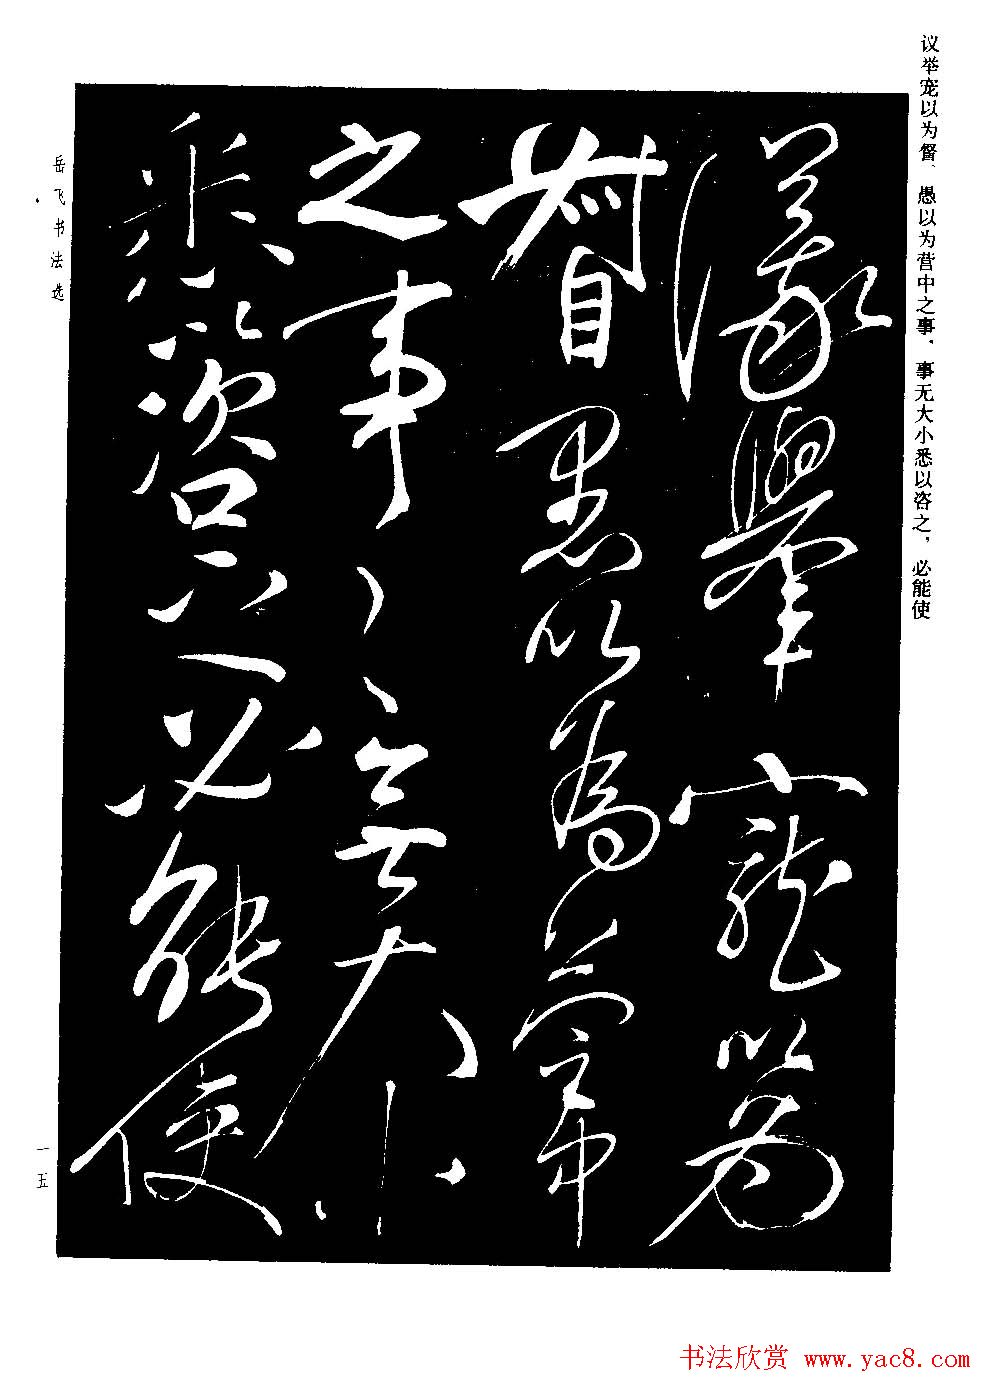 议举宠以为督、愚以为营中之事、事无大小悉以咨之，必能使
議舉寵以為
督愚以為營中
之事事無大小
悉以咨之必能使
岳飞书法选
一五
书法欣赏 www.yac8.com